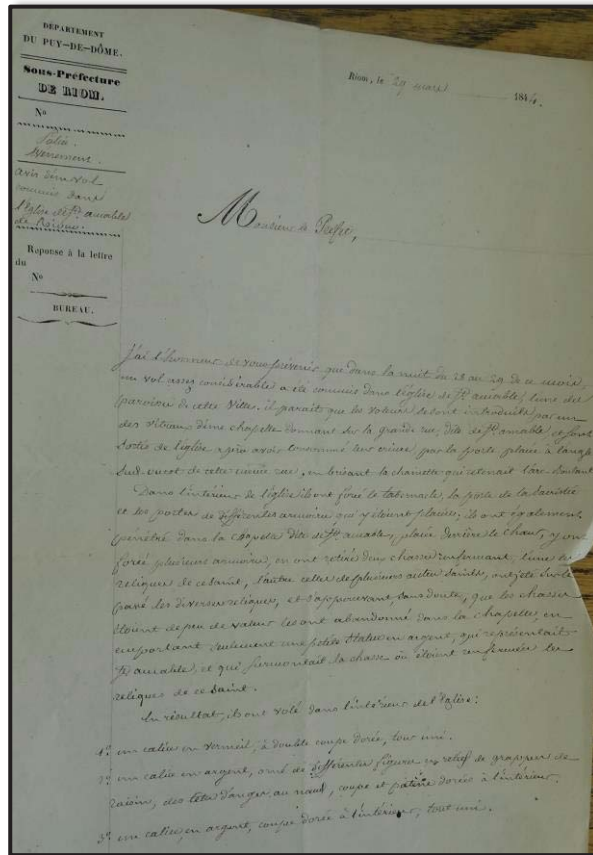 DÉPARTEMENT
DU PUY-DE-DÔME.
Sous-Préfecture
DE RIOM.
Nº
Police.
Evénement.
avis d'un vol
commis dans
l'Eglise de St. amable
de Riom.
Réponse à la lettre
du
Nº
BUREAU.
Riom, le 29 mars 1844.
Monsieur le Préfet,
J'ai l'honneur de vous prévenir que dans la nuit du 28 au 29 de ce mois,
un vol assez considérable a été commis dans l'église de St. amable, l'une des
paroisses de cette Ville. il paraît que les voleurs se sont introduits par un
des vitraux d'une chapelle donnant sur la grande rue, dite de St. amable et sont
sortis de l'église après avoir consommé leur crime, par la porte placée à l'angle
Sud-ouest de cette même rue, en brisant la
Dans l'intérieur de l'église ils ont forcé le tabernacle, la porte de la Sacristie
et les portes de différentes armoires qui y étaient placées; ils ont également
pénétré dans la chapelle dite de St. amable, placée derrière le chœur, y ont
forcé plusieurs armoires, en ont retiré deux chasses renfermant, l'une les
reliques de ce saint, l'autre celles de plusieurs autres saints, ont jeté sur le
pavé les diverses reliques, et s'appercevant sans doute, que les chasses
étoient de peu de valeur les ont abandonné dans la chapelle, en
emportant seulement une petite Statue en argent, qui représentait
St. amable, et qui surmontait la chasse où étoient renfermées les
reliques de ce saint.
En résultat, ils ont volé dans l'intérieur de l'Eglise:
1º. un calice en vermeil, à double coupe dorée, tout uni.
2º. un calice en argent, orné de différentes figures en relief de grappes de
raisin, des têtes d'anges au nœud, coupe et patène dorées à l'intérieur.
3º. un calice, en argent, coupe dorée à l'intérieur, tout uni.